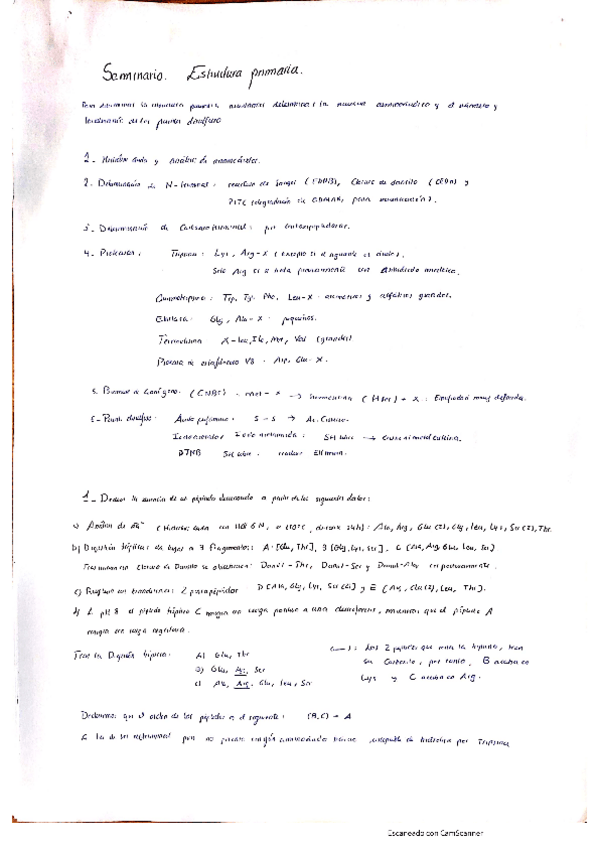 Seminario. Estructura primaria.
Para determinar la estructura primaria necesitamos determinar: la secuencia aminoacídica y el número y
localización de los puentes disulfuro
1- Hidrólisis ácida y Análisis de aminoácidos.
2. Determinación de N-terminal: reactivo de Sanger (FDNB), Cloruro de dansilo (ClDn) y
PITC (degradación de EDMAN, para secuenciación).
3. Determinación de Carboxiterminal: por carboxipeptidasas.
4. Proteasas: Tripsina: Lys, Arg-X (excepto si el siguiente es
Solo Arg si se trata previamente con Anhídrido
Quimotripsina: Trp, Tyr, Phe, Leu-X. aromáticos y alifáticos grandes.
Elastasa: Gly, Ala-X. pequeños.
Termolisina X-Leu, Ile, Met, Val (grandes)
Proteasa de estafilococo V8. Asp, Glu-X.
5. Bromuro de Cianógeno. (CNBr). Met-X → homoserina (Hser) + X.
6-Puente disulfuro: Ácido perfórmico. S-S → Ac. Cisteico.
Iodoacetamida: SH libre →
DTNB SH libre. reactivo Ellman.
1- Deducir la secuencia de un péptido desconocido a partir de los siguientes datos:
a) Análisis de aa (Hidrólisis ácida con HCl 6N, a 110ºC, durante 24h): Ala, Arg, Glu (2), Gly, Leu, Lys, Ser (2), Thr.
b) Digestión tríptica: da lugar a 3 fragmentos: A [Glu, Thr], B [Gly, Lys, Ser], C [Ala, Arg, Glu, Leu, Ser]
Tras reaccionar Cloruro de Dansilo se observaron: Dansil-Thr, Dansil-Ser y Dansil-Ala, respectivamente.
c) 2 parapéptidos D [Ala, Gly, Lys, Ser (2)] y E [Arg, Glu (2), Leu, Thr].
d) A pH 8 el péptido tríptico C migra con carga positiva a una electroforesis, mientras que el péptido A
migra con carga negativa.
Tras la Digestión tríptica: A) Glu, Thr
B) Gly, Lys, Ser
C) Ala, Arg, Glu, Leu, Ser
Los 2 puntos que corta la tripsina, tiene
su Carboxilo, por tanto, B acaba en
Lys y C acaba en Arg.
Deducimos que el orden de los péptidos es el siguiente: (B,C) - A
A ha de ser C-terminal pues no posee ningún aminoácido básico, susceptible de hidrólisis por Tripsina
Escaneado con CamScanner